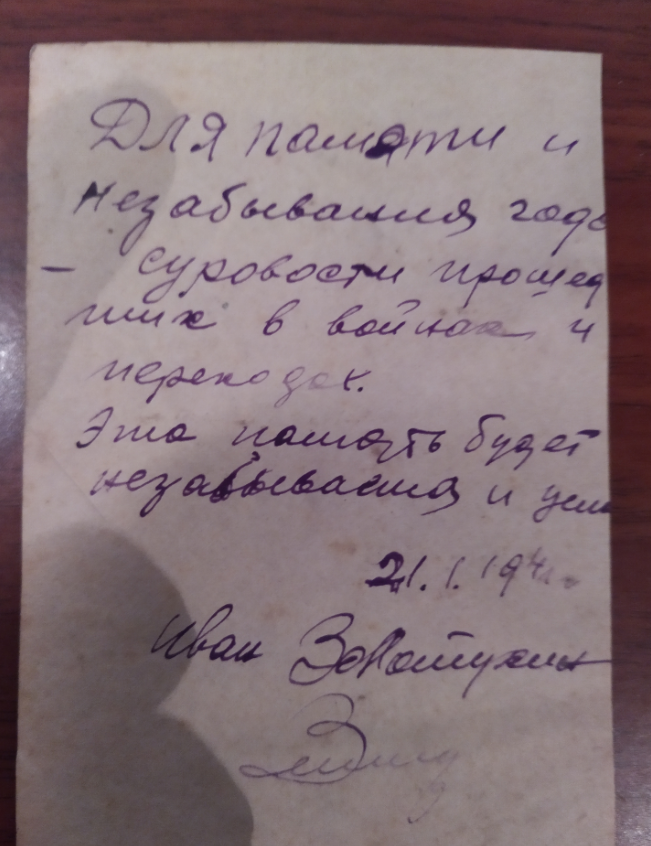 Для памяти и
незабывания годо
- суровости прошед
ших в войнах и
переходах.
Эта память будет
незабываемая и
21.1.194
Иван Золотухин